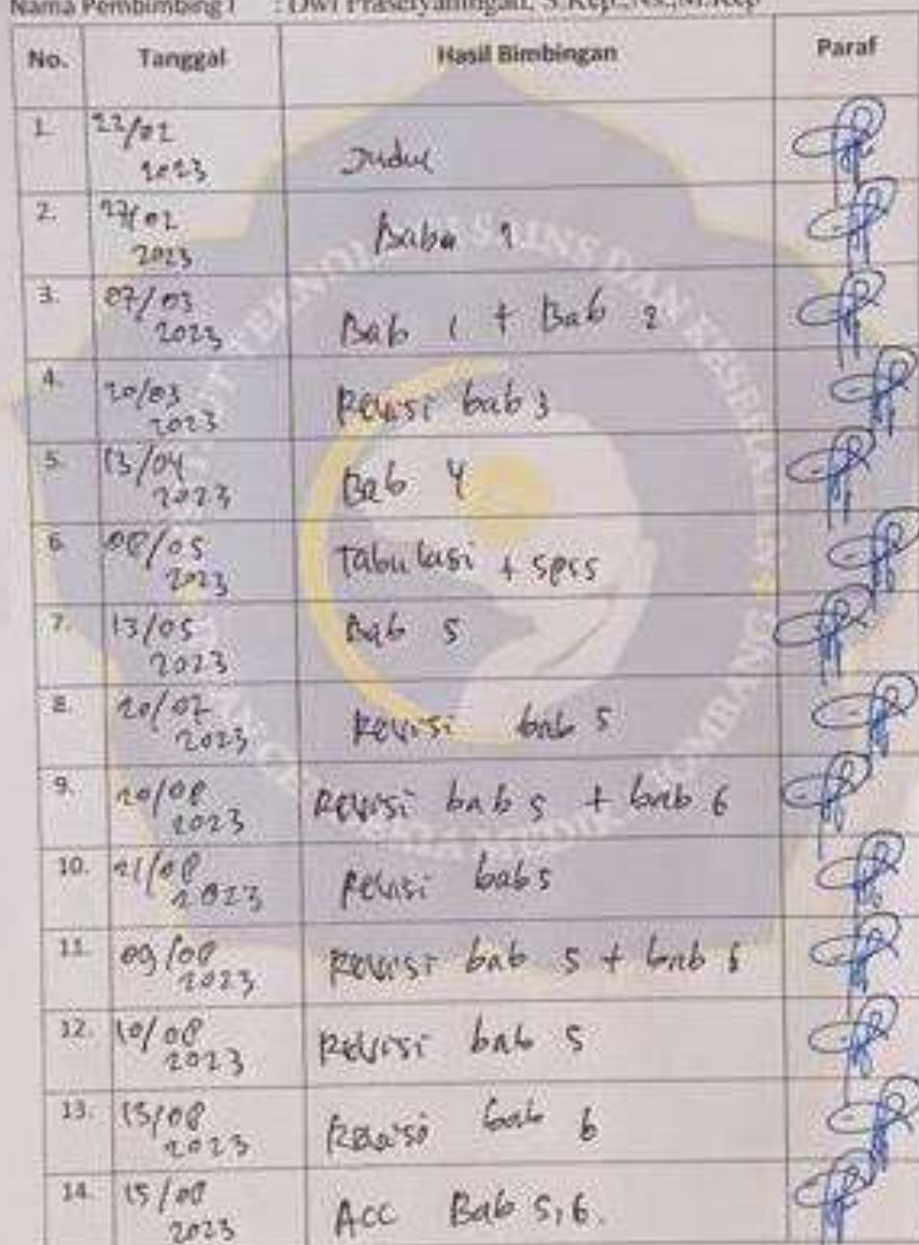 Nama Pembimbing I : Dwi Prasetyaningati, S.Kep.,Ns.,M.Kep
No. Tanggal Hasil Bimbingan Paraf
1. 22/02 2023 Judul
2. 27/02 2023 Bab 1
3. 07/03 2023 Bab 1 + Bab 2
4. 20/03 2023 Revisi bab 3
5. 13/04 2023 Bab 4
6. 08/05 2023 Tabulasi + SPSS
7. 13/05 2023 Bab 5
8. 20/07 2023 Revisi bab 5
9. 20/08 2023 Revisi bab 5 + bab 6
10. 21/08 2023 Revisi bab 5
11. 09/08 2023 Revisi bab 5 + bab 6
12. 10/08 2023 Revisi bab 5
13. 15/08 2023 Revisi bab 6
14. 15/08 2023 Acc Bab 5,6.